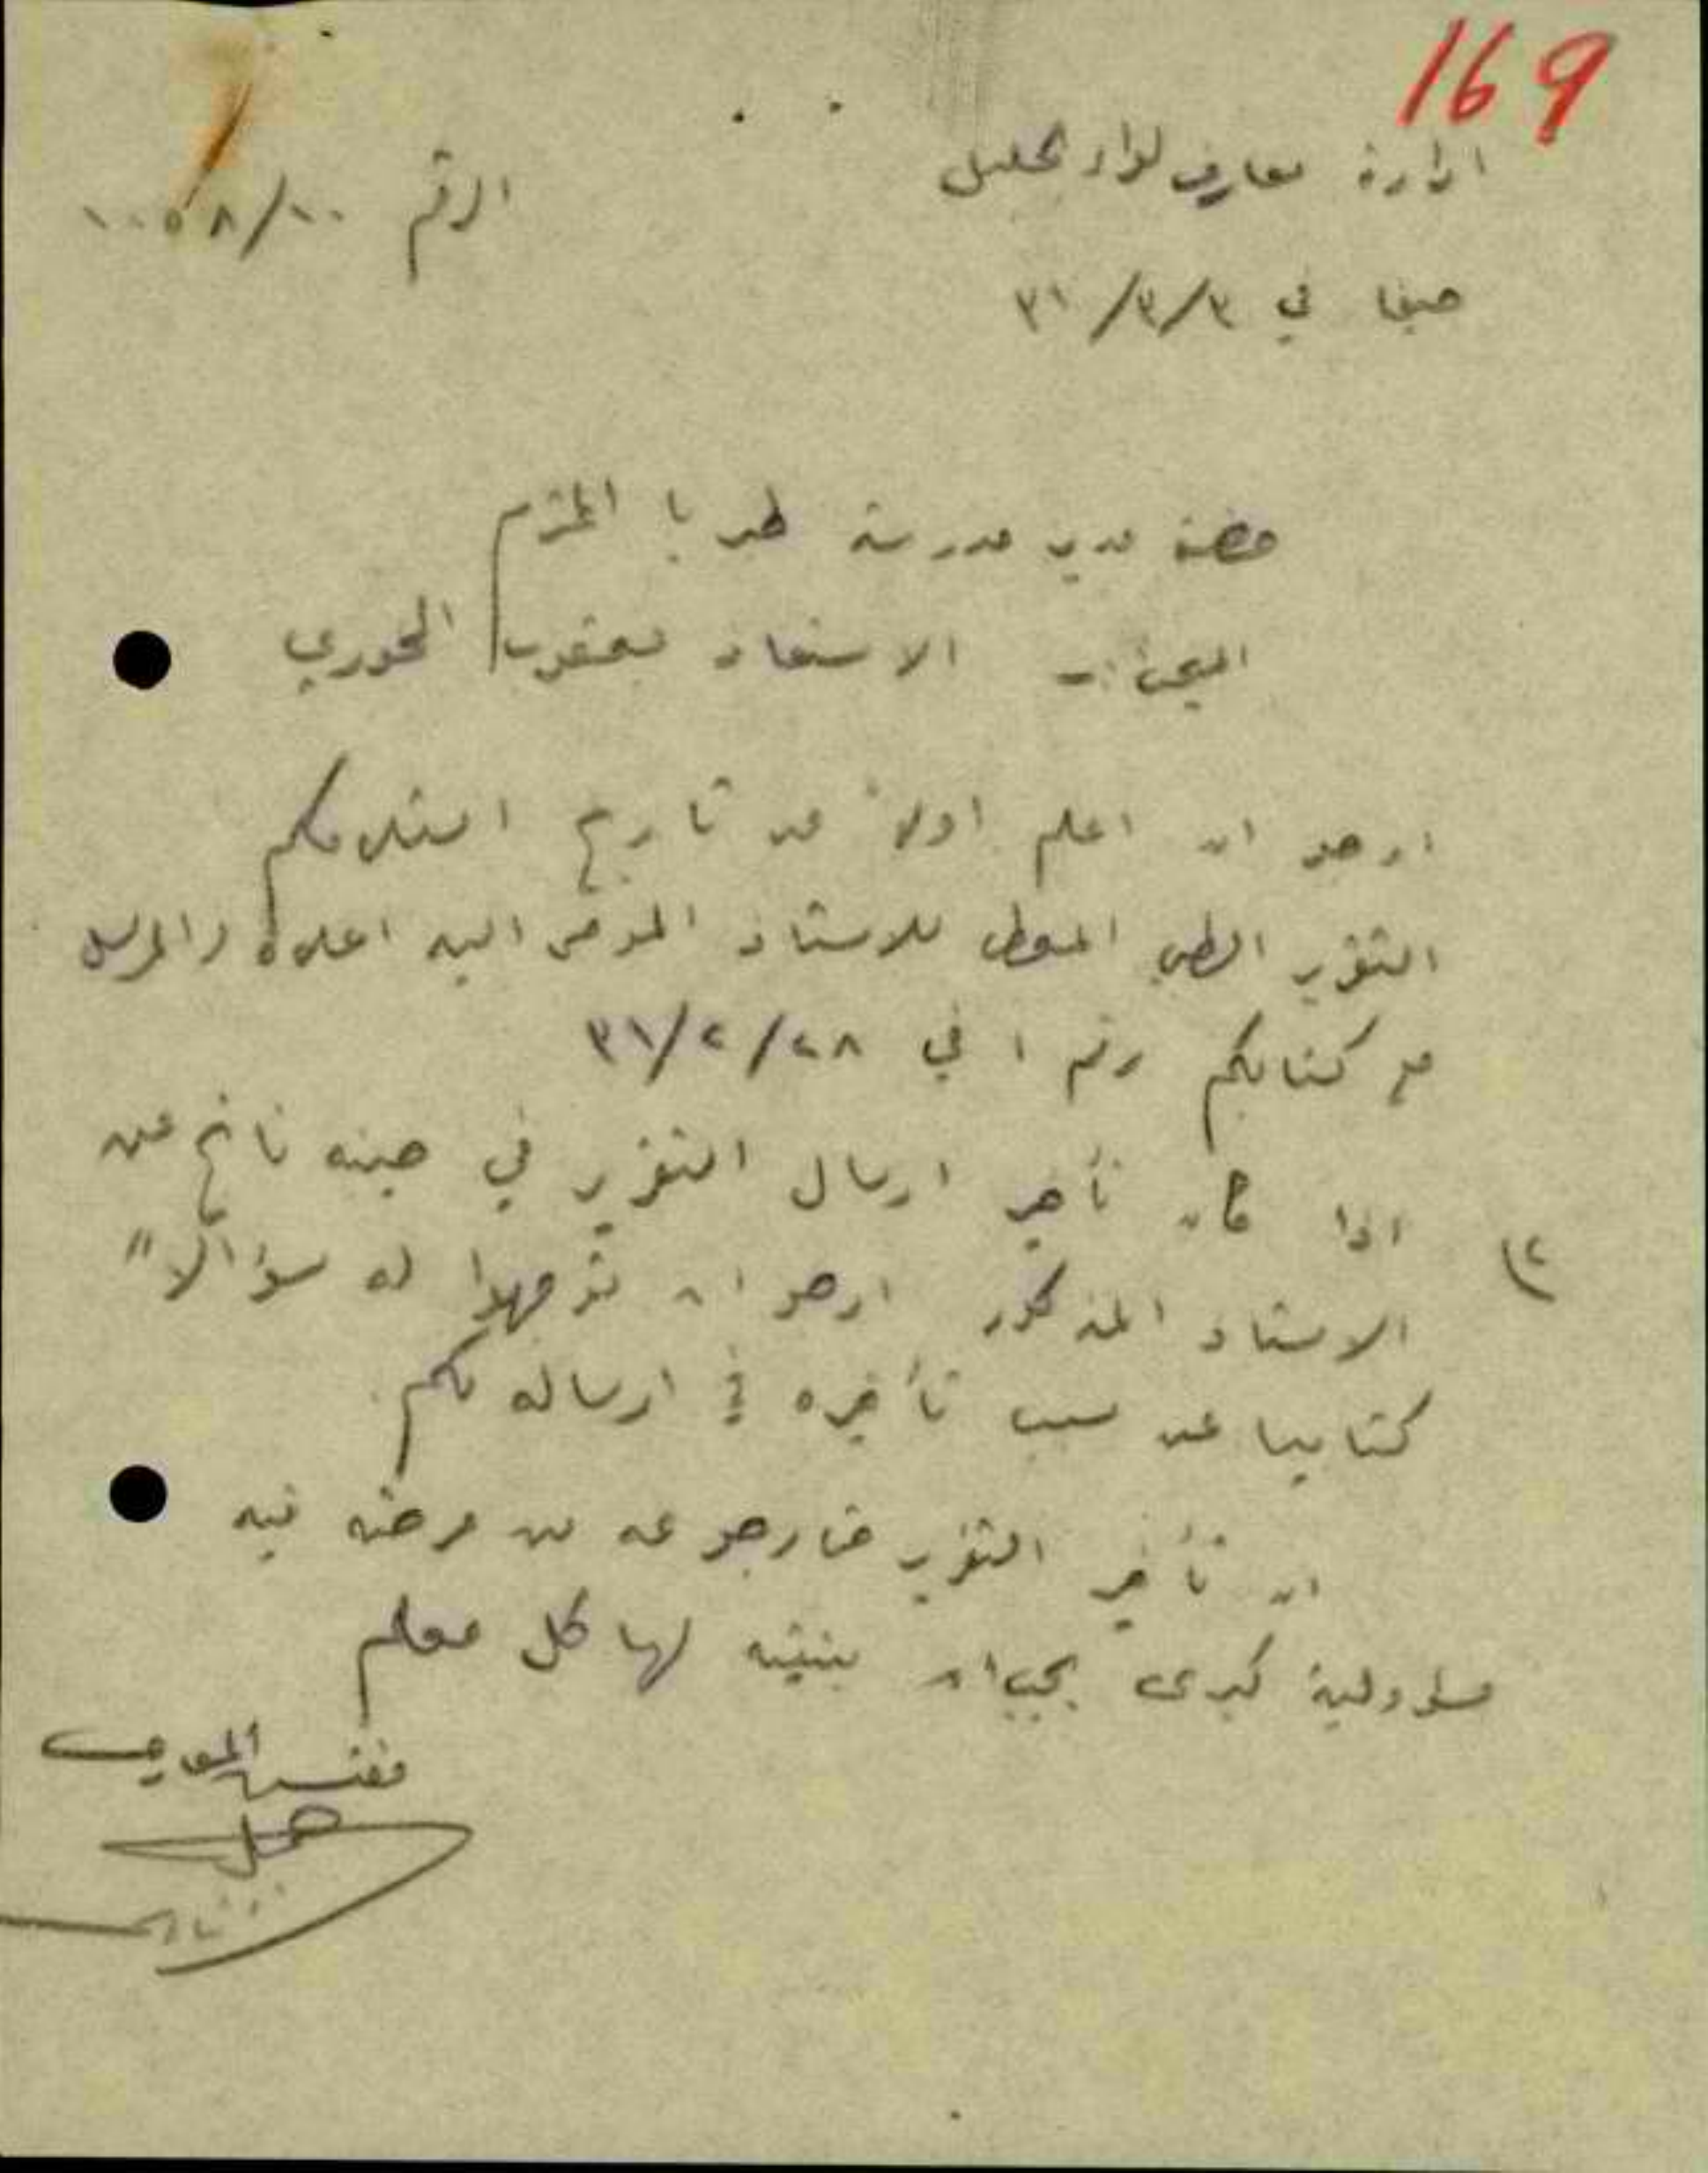 169
ادارة معارف لواء الجليل
الرقم ١٠٠٥٨/١٠
حيفا في ٣/٣/٣١
حضرة مدير مدرسة طبريا المحترم
المبحث :- الاستاذ يعقوب الخوري
ارجو ان اعلم اولاً عن تاريخ استلامكم
التقرير الطبي المعطى للاستاذ المومى اليه اعلاه والمرسل
مع كتابكم رقم ١ في ٣١/٢/٢٨
٢) اذا كان تأخير ارسال التقرير في حينه ناتج عن
الاستاذ المذكور ارجو ان توجهوا له سؤالاً"
كتابيا عن سبب تأخيره في ارساله لكم.
ان تأخير التقرير من مرضه فيه
مسؤولية كبرى يجب ان ينتبه لها كل معلم
مفتش المعارف